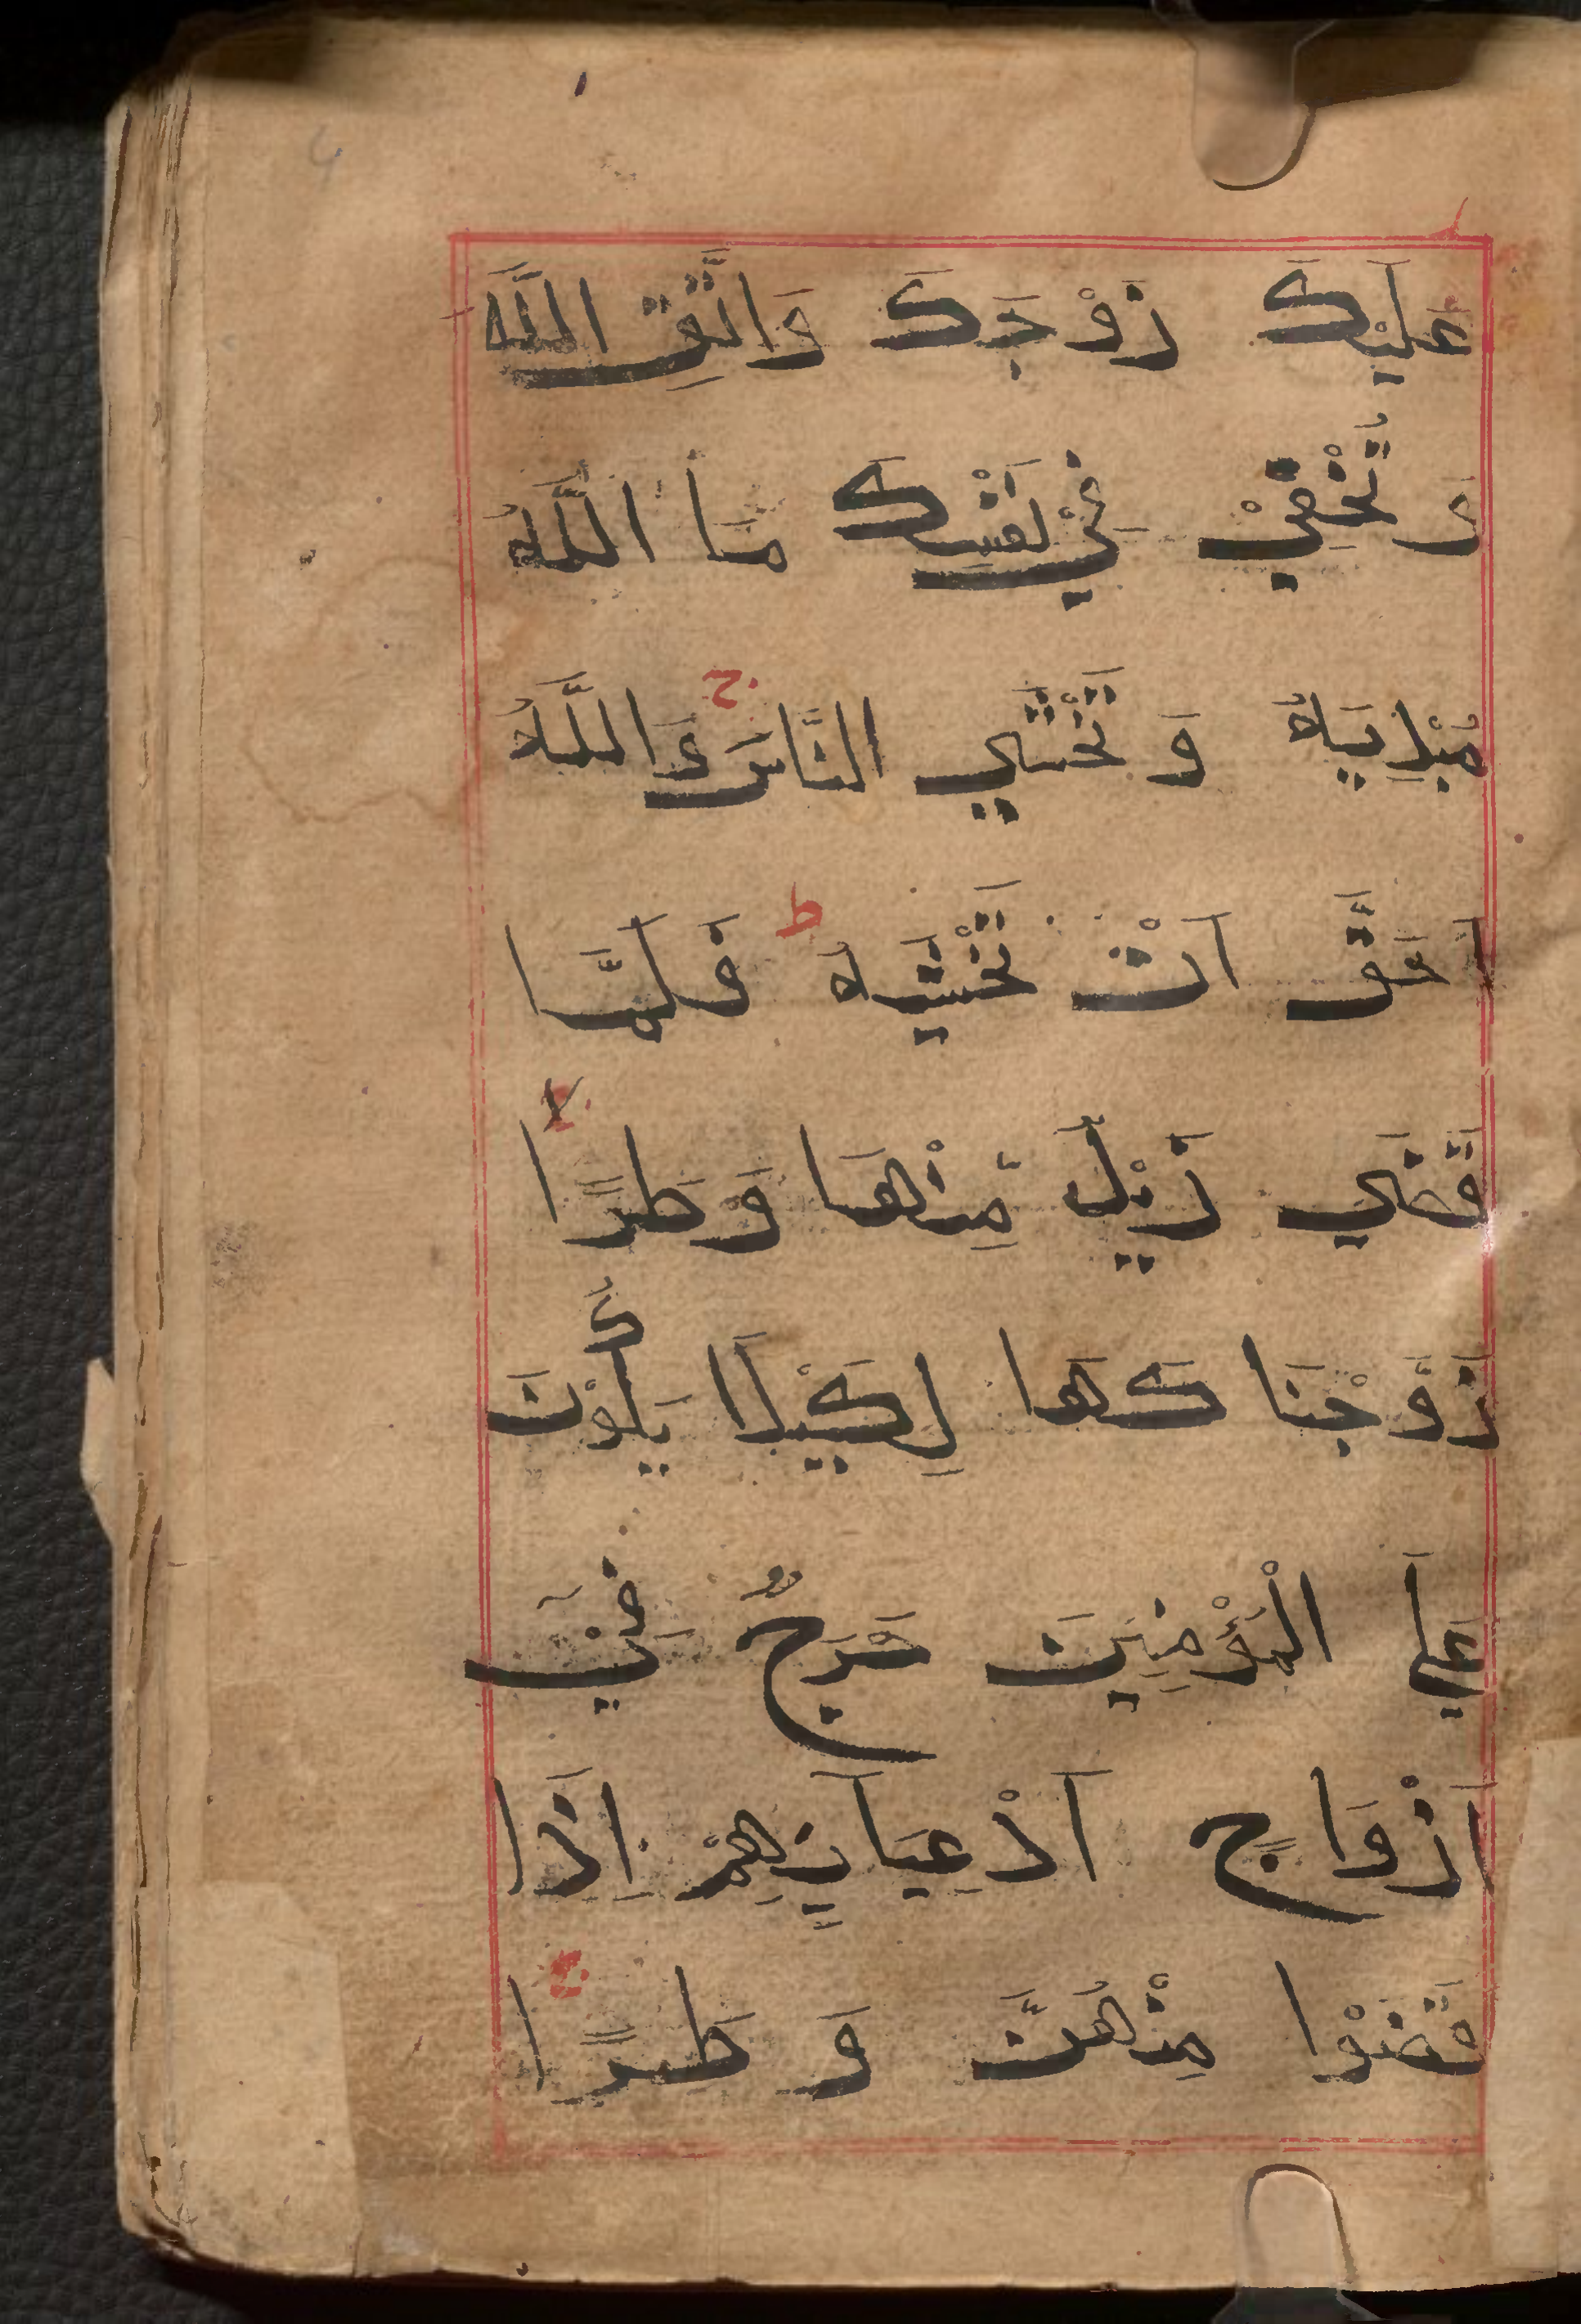 عَلَيْكَ زَوْجَكَ وَاتَّقِ اللَّهَ
وَ تُخْفِيْ فِيْ نَفْسِكَ مَا اللَّهُ
مُبْدِيْهِ وَ تَخْشَي النَّاسَ ج وَاللَّهُ
اَحَقُّ اَنْ تَخْشٰيهُ ط فَلَمَّا
قَضٰي زَيْدٌ مِّنْهَا وَطَرًا لا
زَوَّجْنَا كَهَا لِكَيْلَا يَكُوْنَ
عَلَي الْمُؤْمِنِيْنَ حَرَجٌ فِيْٓ
اَزْوَاجِ اَدْعِيَائِهِمْ اِذَا
قَضَوْا مِنْهُنَّ وَ طَرًا